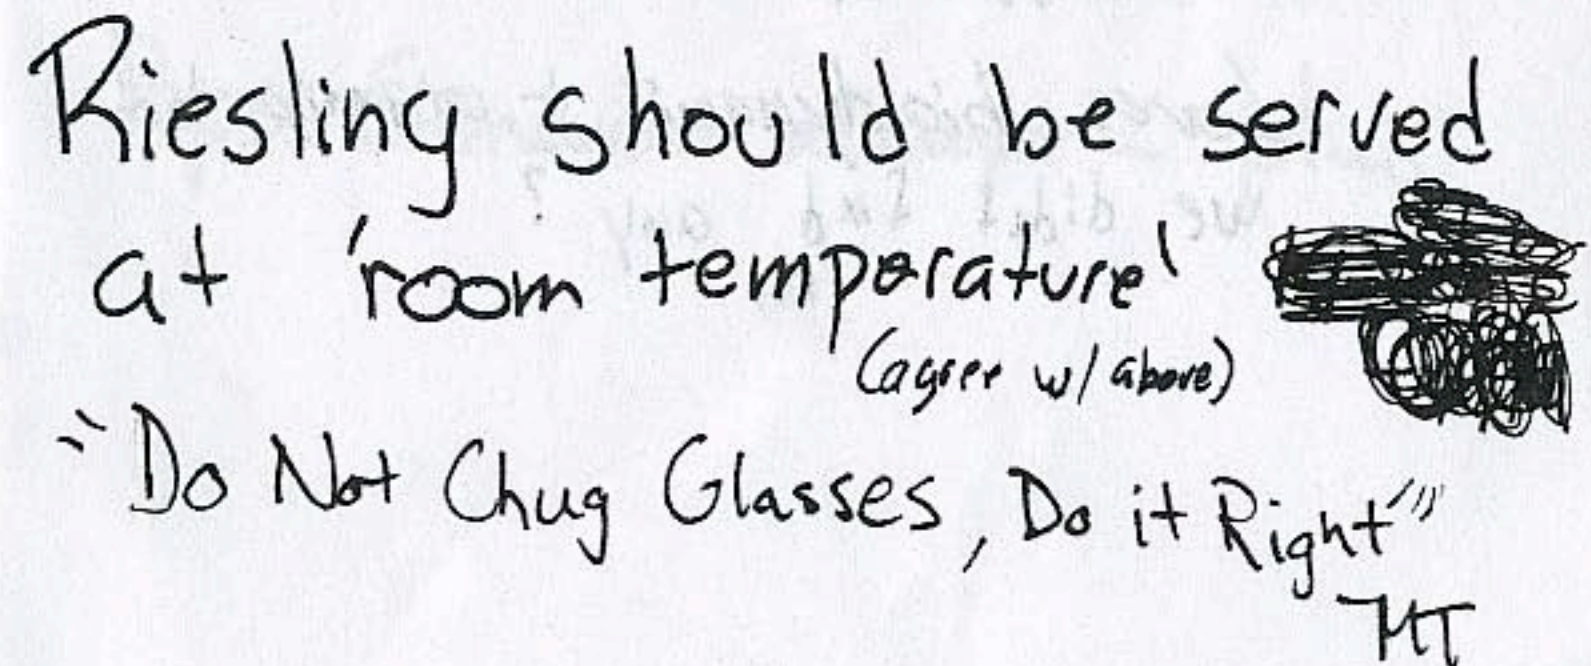 Riesling should be served
at 'room temperature'
(agree w/ above)
"Do Not Chug Glasses, Do it Right"